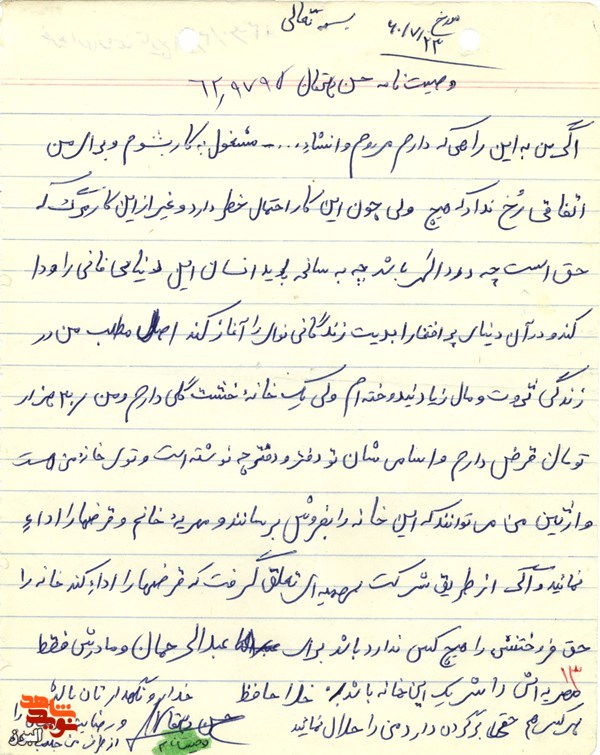 بسمه تعالی
مورخ
۶۰/۷/۲۳
وصیت نامه حسن دهقان ۶۲،۹۷۹۵
اگر من به این راهی که دارم میروم و انشاءا... مشغول به کار بشوم و برای من
اتفاقی رُخ نداد که هیچ ولی چون این کار احتمال خطر دارد و غیر از این کار مرگ که
حق است چه دور اگر باشد چه به سانحه باید انسان این دنیای فانی را وداع
کند و در آن دنیای پر افتخار ابدیت زندگانی نوی را آغاز کند اصل مطلب من در
زندگی ثروت و مال زیاد نیندوخته ام ولی یک خانهٔ خشت گلی دارم و من ۳۰ هزار
تومان قرض دارم و اسامی شان تو دفتر و دفترچه نوشته است و توی خانه من هست
وارثین من می توانند که این خانه را بفروش برسانند و مهریهٔ خانم و قرضها را اداء
نمائید و اگر از طریق شرکت سهمیه ای تعلق گرفت که قرضها را اداء کند خانه را
حق فروختنش را هیچ کس ندارد باشد برای عبدالرحمان و مادرش فقط
مهریه اش را شریک این خانه باشد خدا حافظ خدا نگهدارتان باشد
۱۳
هر کس هم حقی بر گردن دارد من را حلال نمائید
حسن دهقان
و رضایت
از طرف من
شاهد
نوید